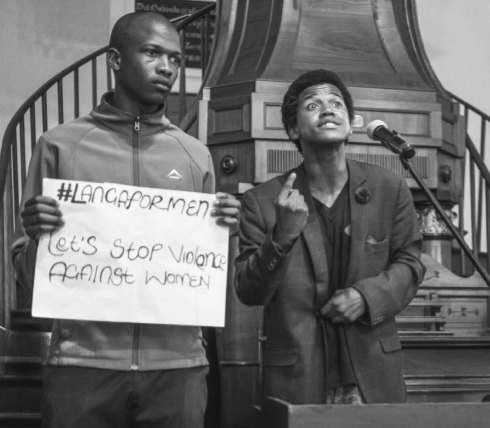 #LANGAFORMEN
Let's Stop Violence
Against Women